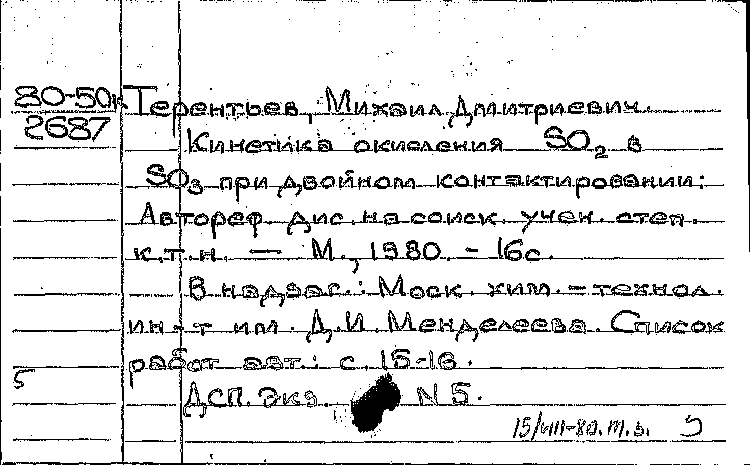 80-50к Терентьев, Михаил Дмитриевич.
2687
Кинетика окисления SO₂ в
SO₃ при двойном контактировании:
Автореф. дис. на соиск. учен. степ.
к.т.н. — М., 1980. - 16с.
В надзаг.: Моск. хим. - технол.
ин-т им. Д.И. Менделеева. Список
работ авт.: с. 15-16.
5
ДСП. Экз. N 5.
15/VIII-80. т.з.